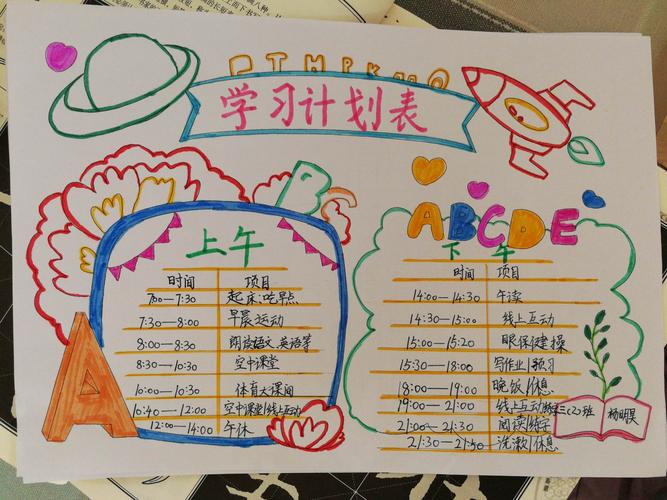 学习计划表
上午
时间 项目
7:00—7:30 起床:吃早点
7:30—8:00 早晨运动
8:00—8:30 朗读语文.英语等
8:30—10:30 空中课堂
10:00—10:30 体育大课间
10:40—12:00 空中课堂|线上互动
12:00—14:00 午休
ABCDE
下午
时间 项目
14:00—14:30 午读
14:30—15:00 线上互动
15:00—15:20 眼保健操
15:30—18:00 写作业|预习
18:00—19:00 晚饭|休息
19:00—21:00 线上互动
21:00—21:30 阅读|练字
21:30—21:50 洗漱|休息
三(2)班 杨明昊